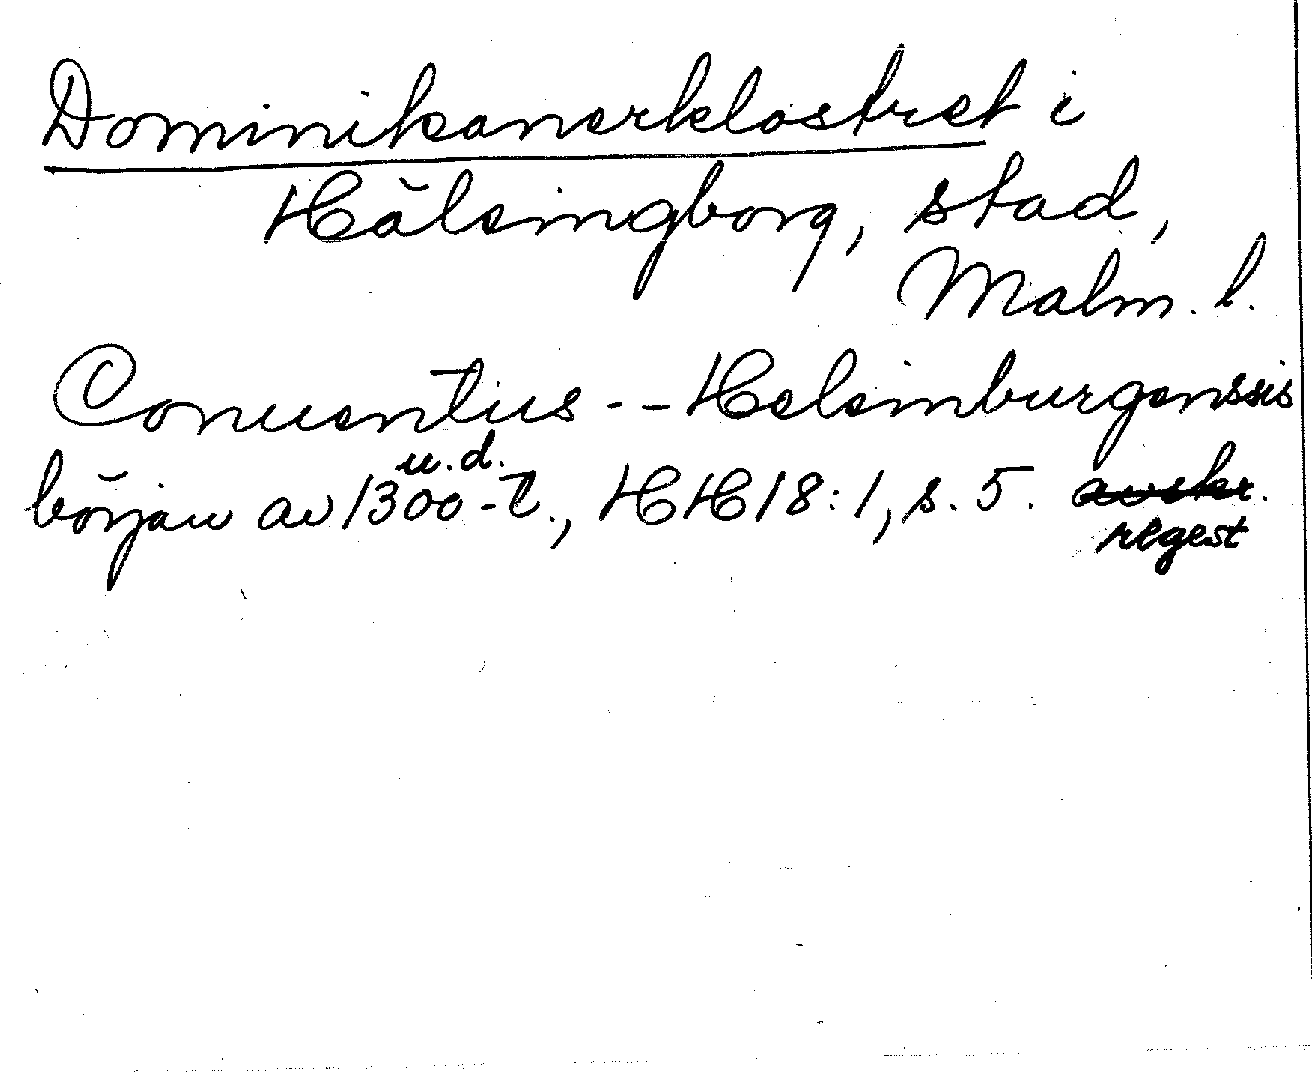 Dominikanerklostret i
Hälsingborg, stad,
Malm. l.
Conuentus -- Helsinburgenssis
u. d.
början av 1300-t., HH 18:1, s. 5. avskr.
regest